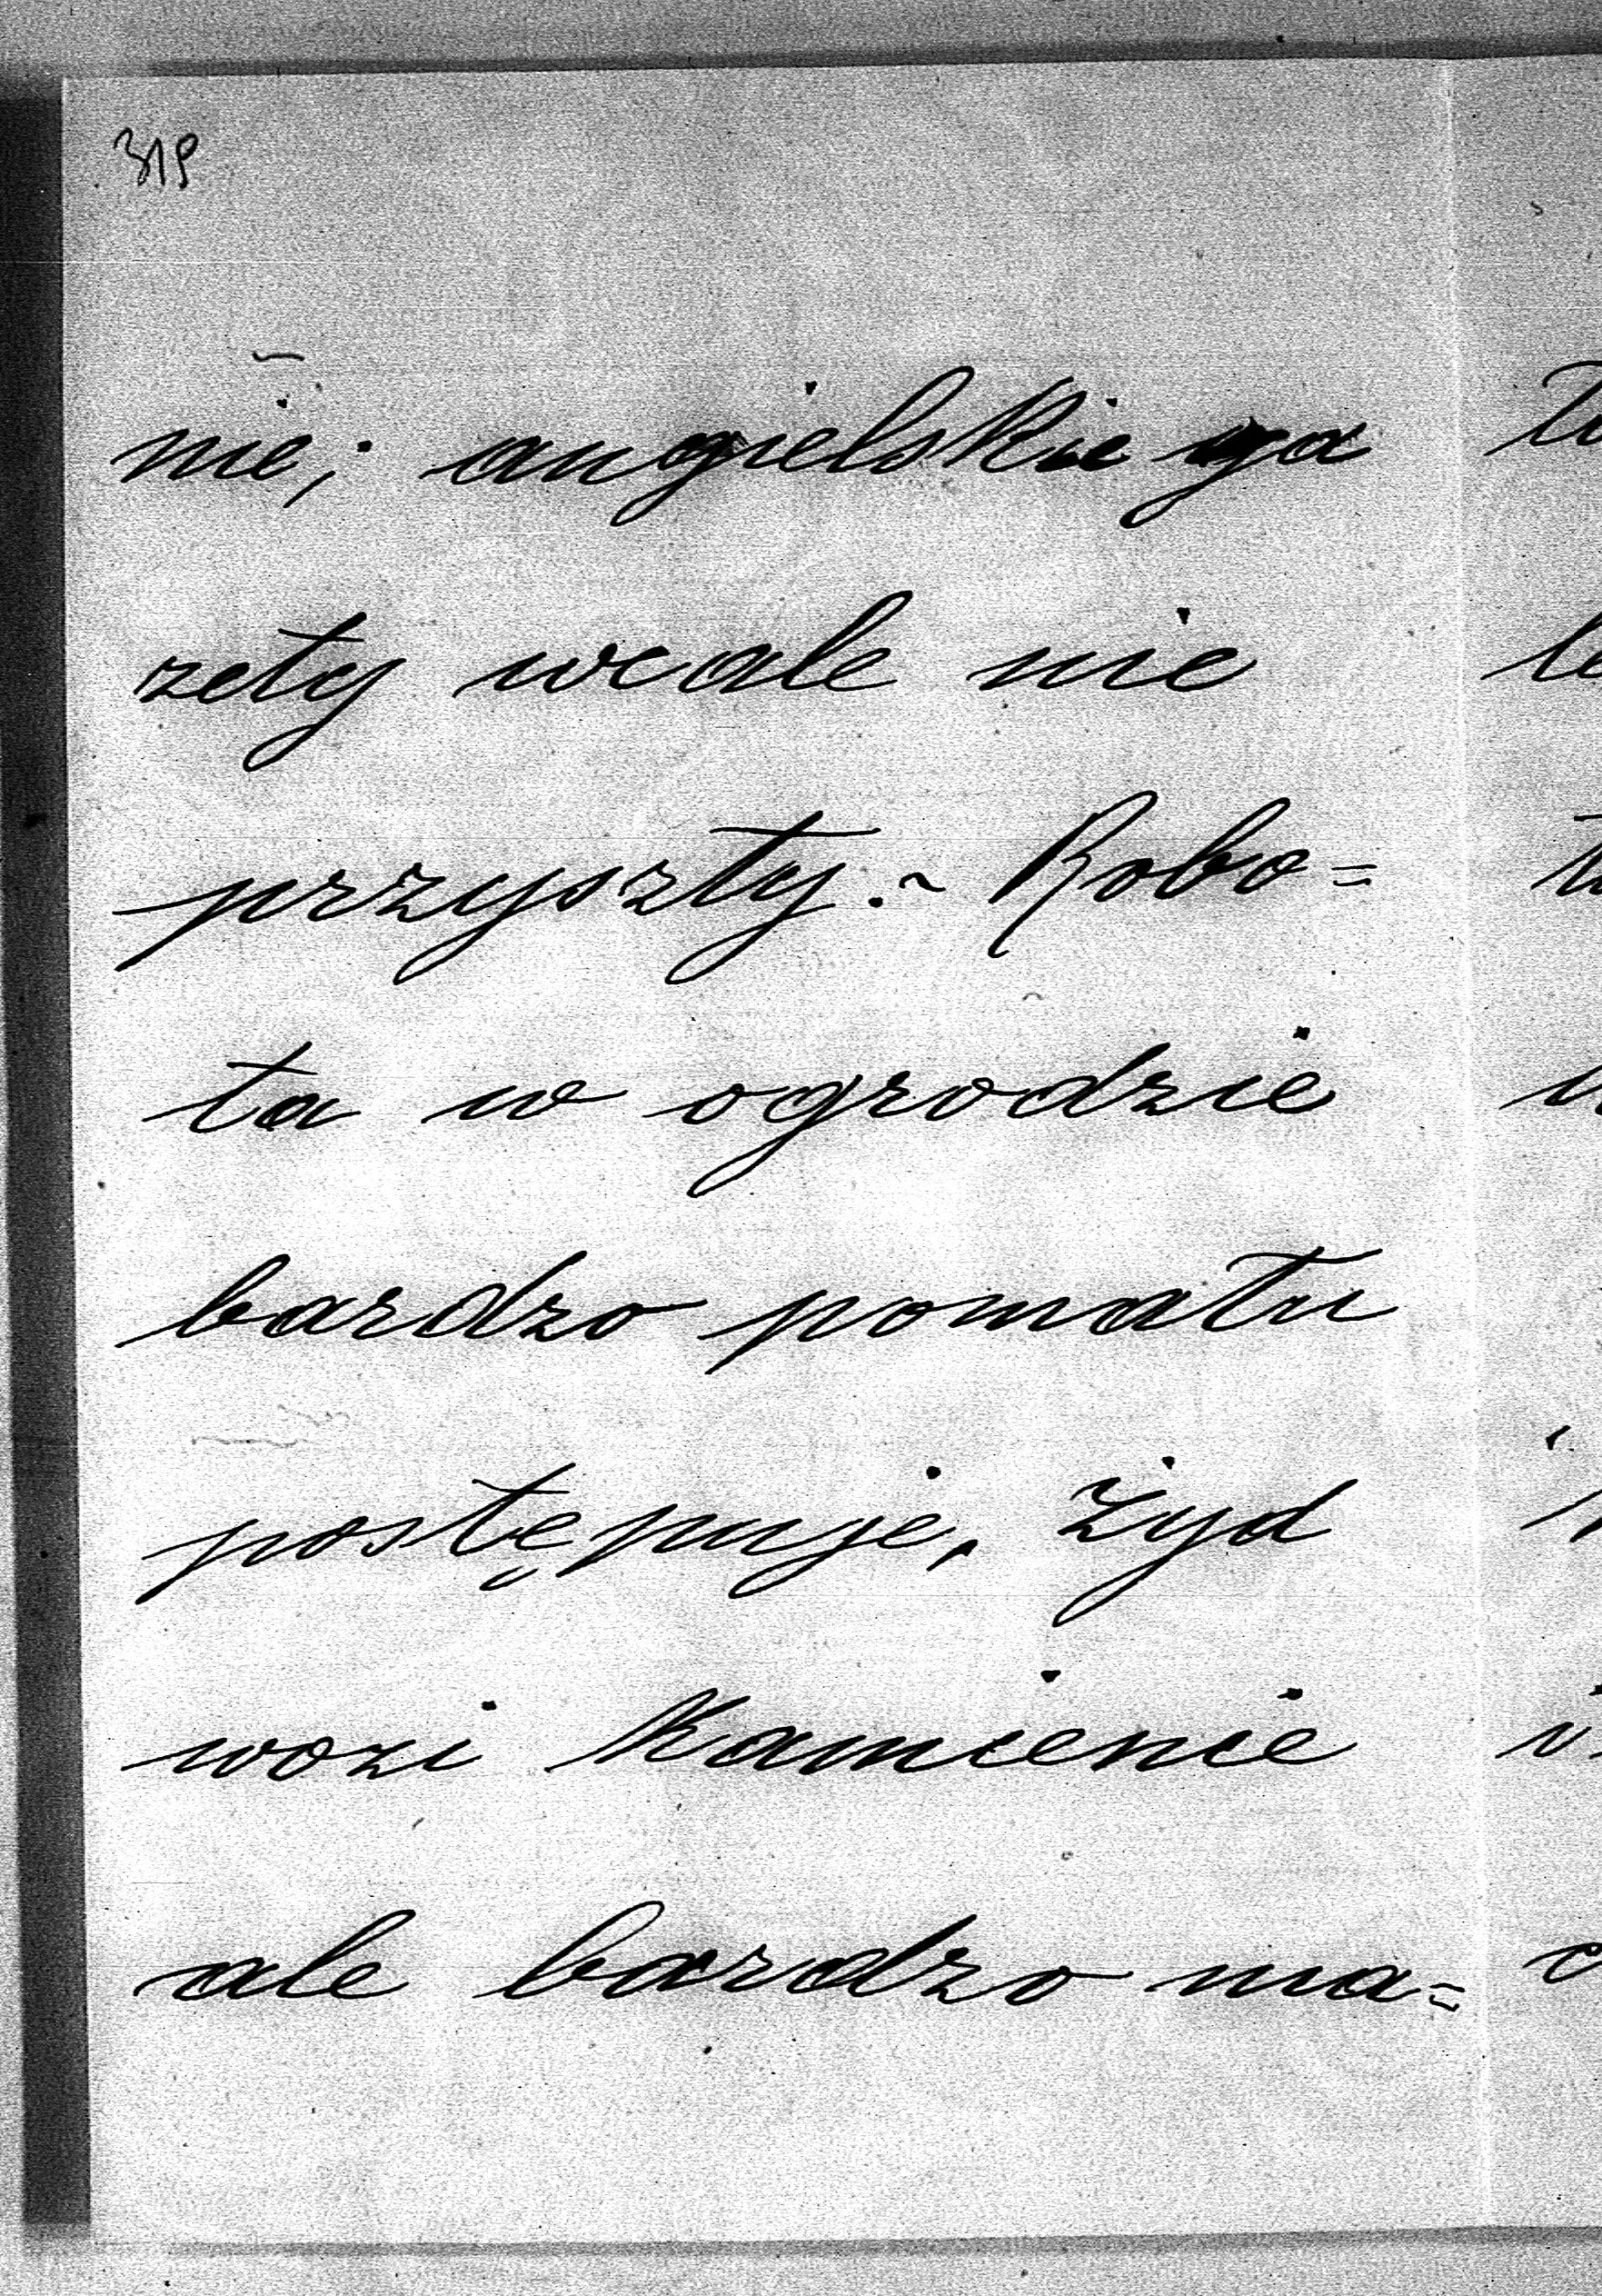 319
nie; angielskie ga
zety wcale nie
przyszły. ~ Robo=
ta w ogrodzie
bardzo pomału
postępuje, Żyd
wozi kamienie
ale bardzo ma=